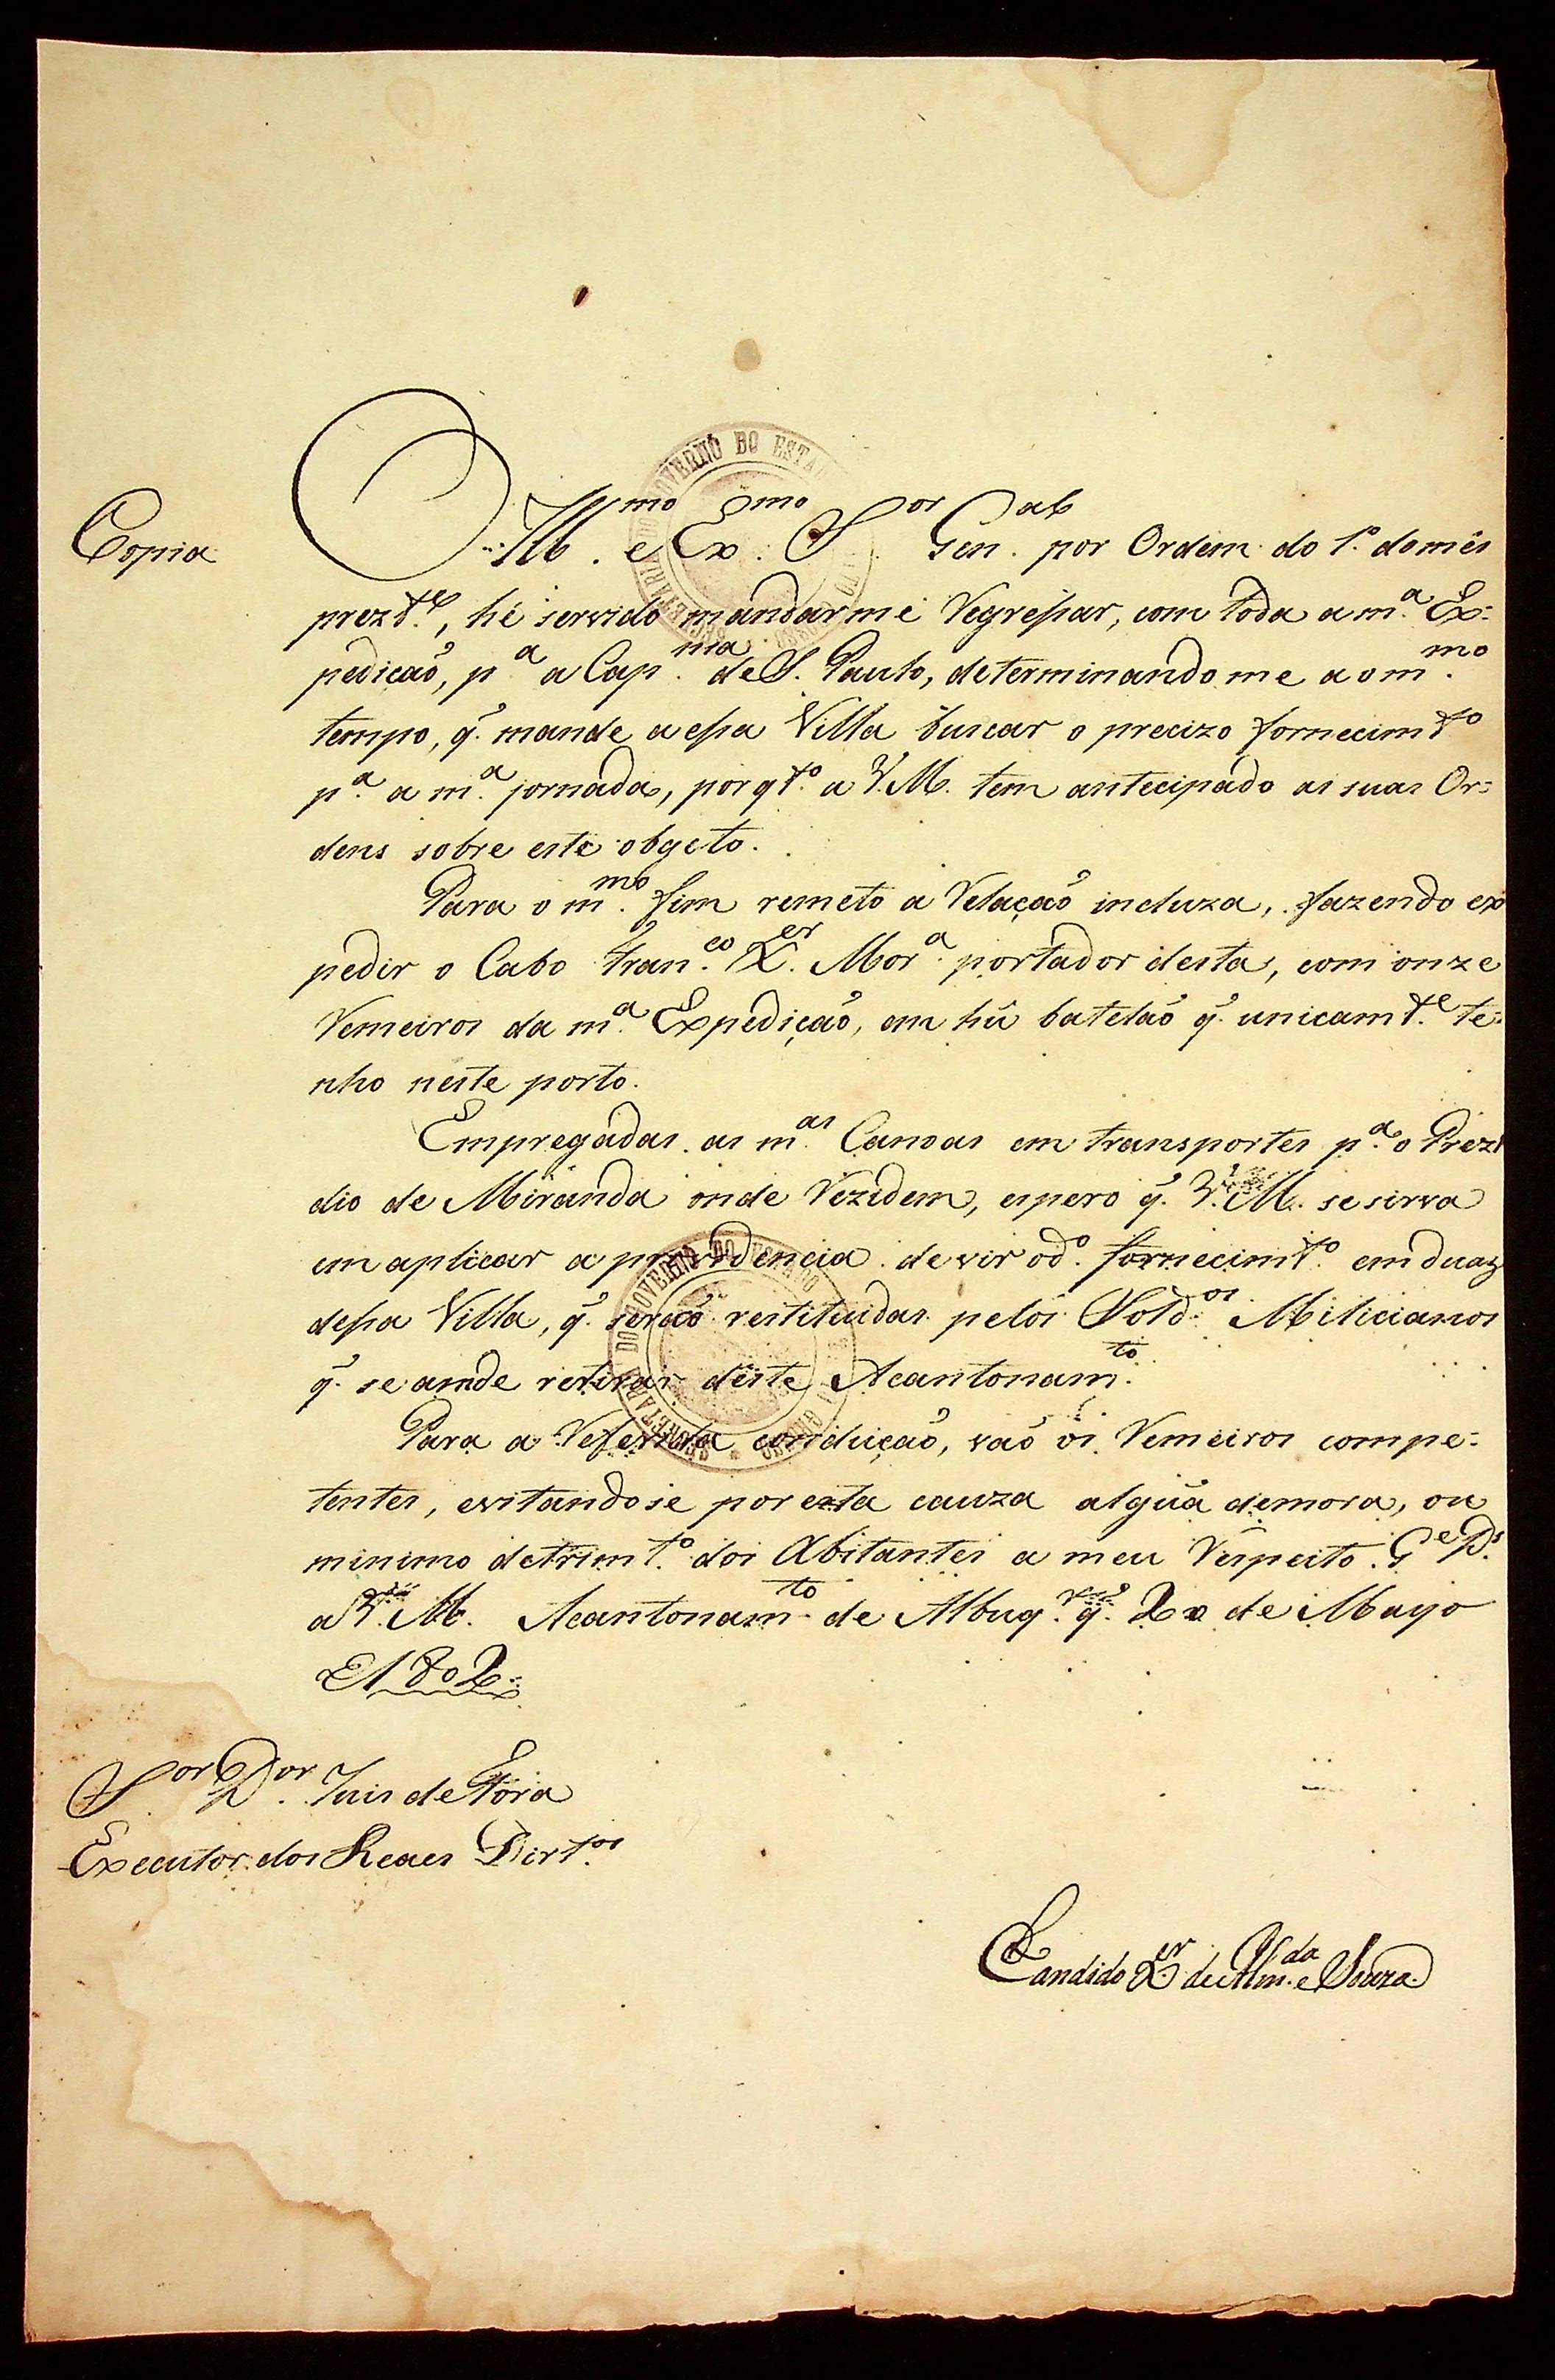 Copia
O Ill.mo e Ex.mo S.or Gen.al por Ordem do 1.º do mês
prezt.e, hé servido mandarme Regressar, com toda a m.a Ex=
pedicaõ, p.a a Cap.nia de S. Paulo, determinandome ao m.mo
tempo, q. mande a essa Villa buscar o precizo fornecimt.o
p.a a m.a jornada, porqt.o a V.M. tem antecipado as suas Or=
dens sobre este objeto.
Para o m.mo fim remeto a Relaçaõ incluza, fazendo ex
pedir o Cabo Fran.co X.er Mor.a portador desta, com onze
Remeiros da m.a Expediçaõ, em hũ batelaõ q. unicamt.e te=
nho neste porto.
Empregadas as m.as Canoas em transportes p.a o Prezi
dio de Miranda onde Rezidem, espero q. V.M. se sirva
em aplicar a providencia de vir o d.o fornecimt.o em duas
dessa Villa, q. seraõ restituidas pelos Sold.os Milicianos
q. se amde retirar deste Acantonam.to
Para a Referida conduiçaõ, vaõ os Remeiros compe=
tentes, evitandose por esta cauza algũa demora, ou
minimo detrimt.o dos Abitantes a meu Respeito. G.e D.s
a V.M. Acantonam.to de Albuq.e q. 2 de Mayo
de 1802=
S.or D.or Juis de Fóra
Executor dos Reaes Dirt.os
Candido X.er de Alm.da e Souza
SECRETARIA DO GOVERNO DO ESTADO
SECRETARIA DO GOVERNO DO ESTADO